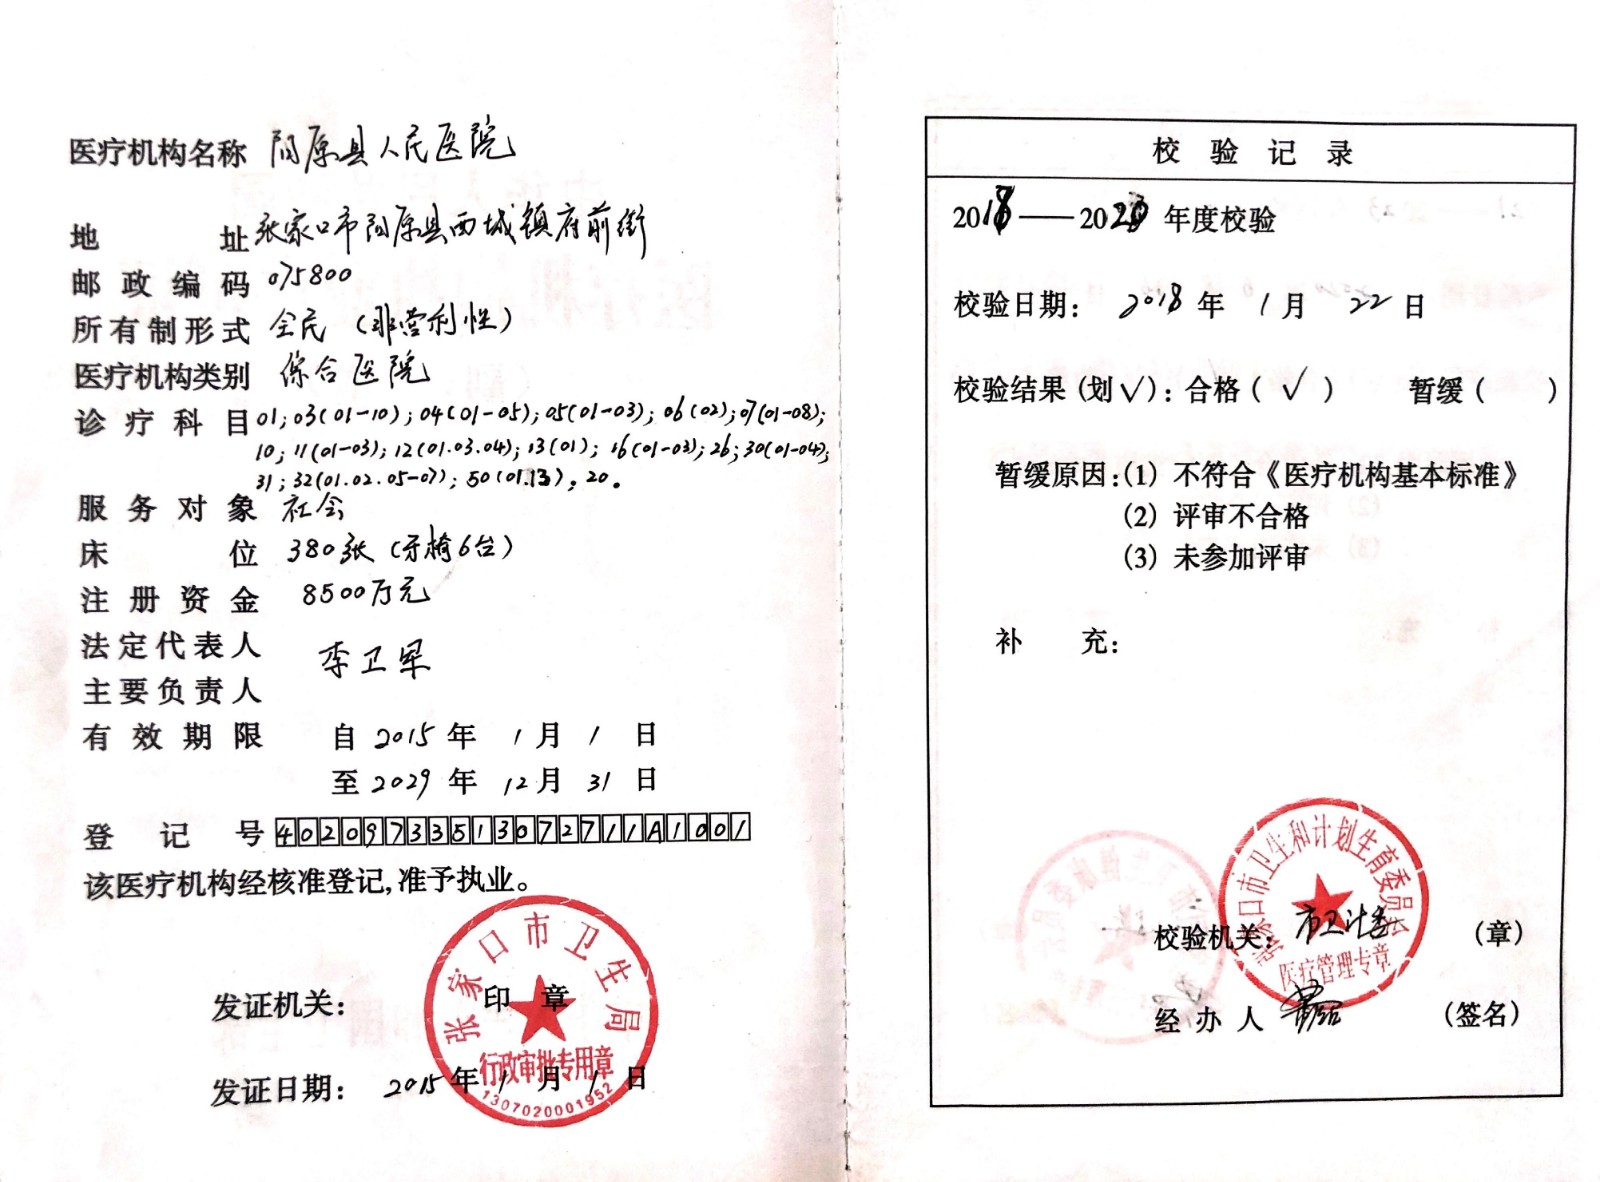 医疗机构名称 阳原县人民医院
地 址 张家口市阳原县西城镇府前街
邮政编码 075800
所有制形式 全民（非营利性）
医疗机构类别 综合医院
诊疗科目 01；03(01-10)；04(01-05)；05(01-03)；06(02)；07(01-08)；
10；11(01-03)；12(01.03.04)；13(01)；16(01-03)；26；30(01-04)；
31；32(01.02.05-07)；50(01.13)；20。
服务对象 社会
床 位 380张（牙椅6台）
注册资金 8500万元
法定代表人
李卫军
主要负责人
有效期限 自 2015 年 1 月 1 日
至 2029 年 12 月 31 日
登记号 40209733513072711A1001
该医疗机构经核准登记,准予执业。
发证机关： 印 章
张家口市卫生局
行政审批专用章
1307020001952
发证日期： 2015 年 1 月 1 日
校验记录
2018——2020 年度校验
校验日期： 2018 年 1 月 22 日
校验结果 (划√)：合格 ( √ ) 暂缓 ( )
暂缓原因：(1) 不符合《医疗机构基本标准》
(2) 评审不合格
(3) 未参加评审
补 充：
张家口市卫生和计划生育委员会
医疗管理专章
校验机关：市卫计委 (章)
经办人 (签名)